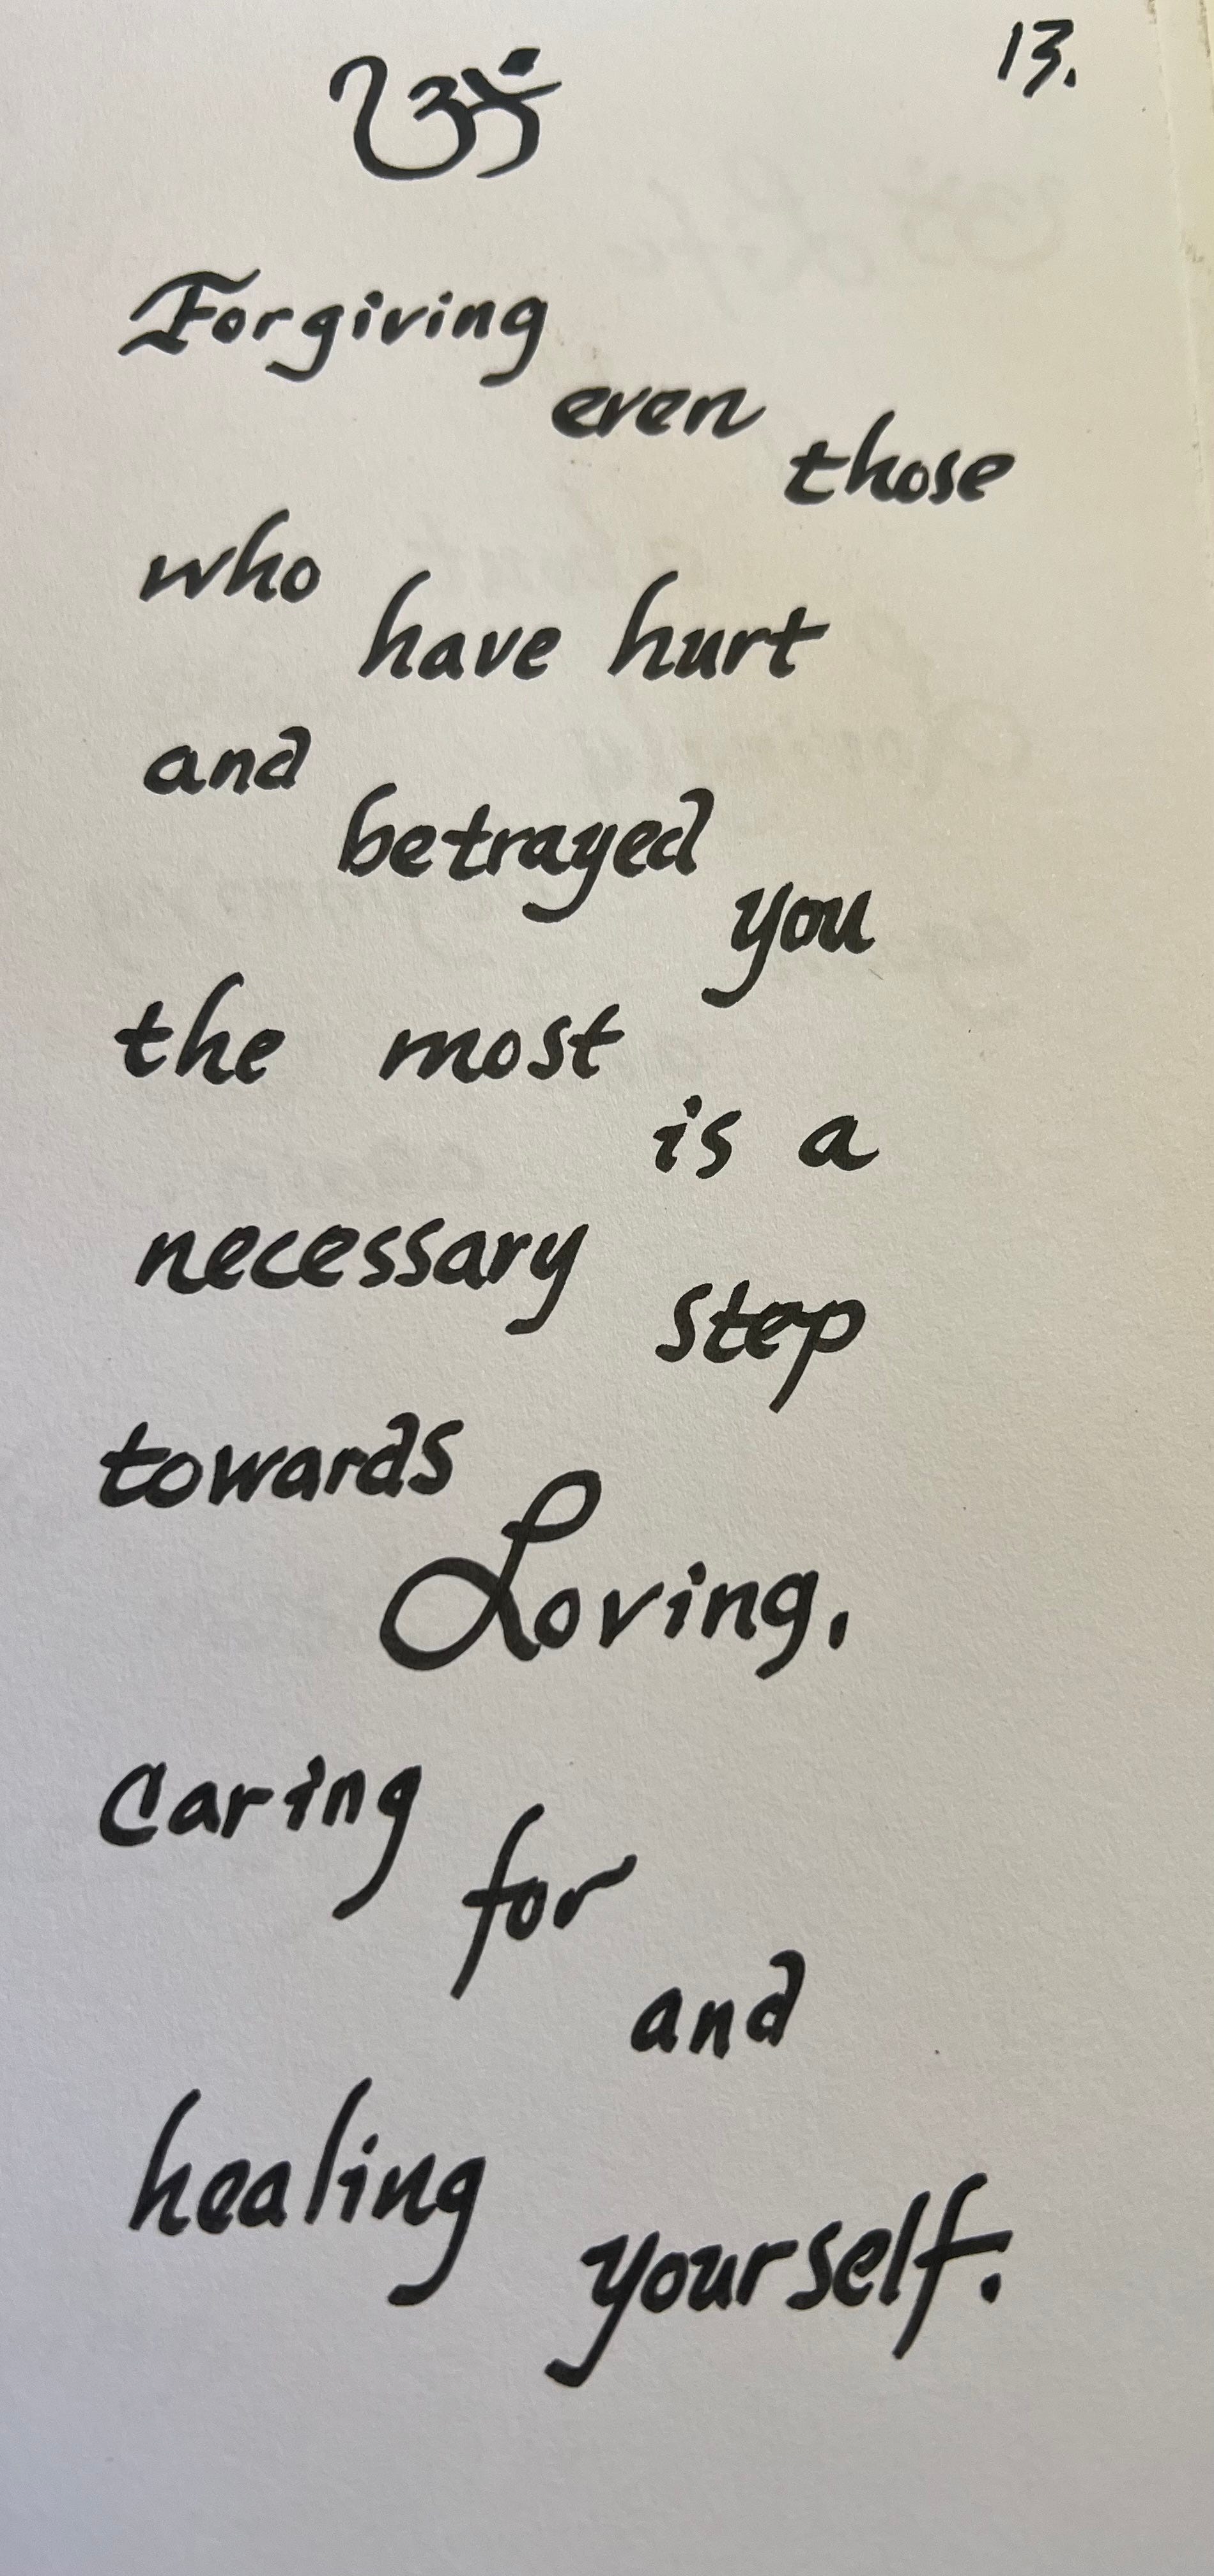 13.
ॐ
Forgiving even those
who have hurt
and betrayed you
the most is a
necessary step
towards Loving,
caring for and
healing yourself.